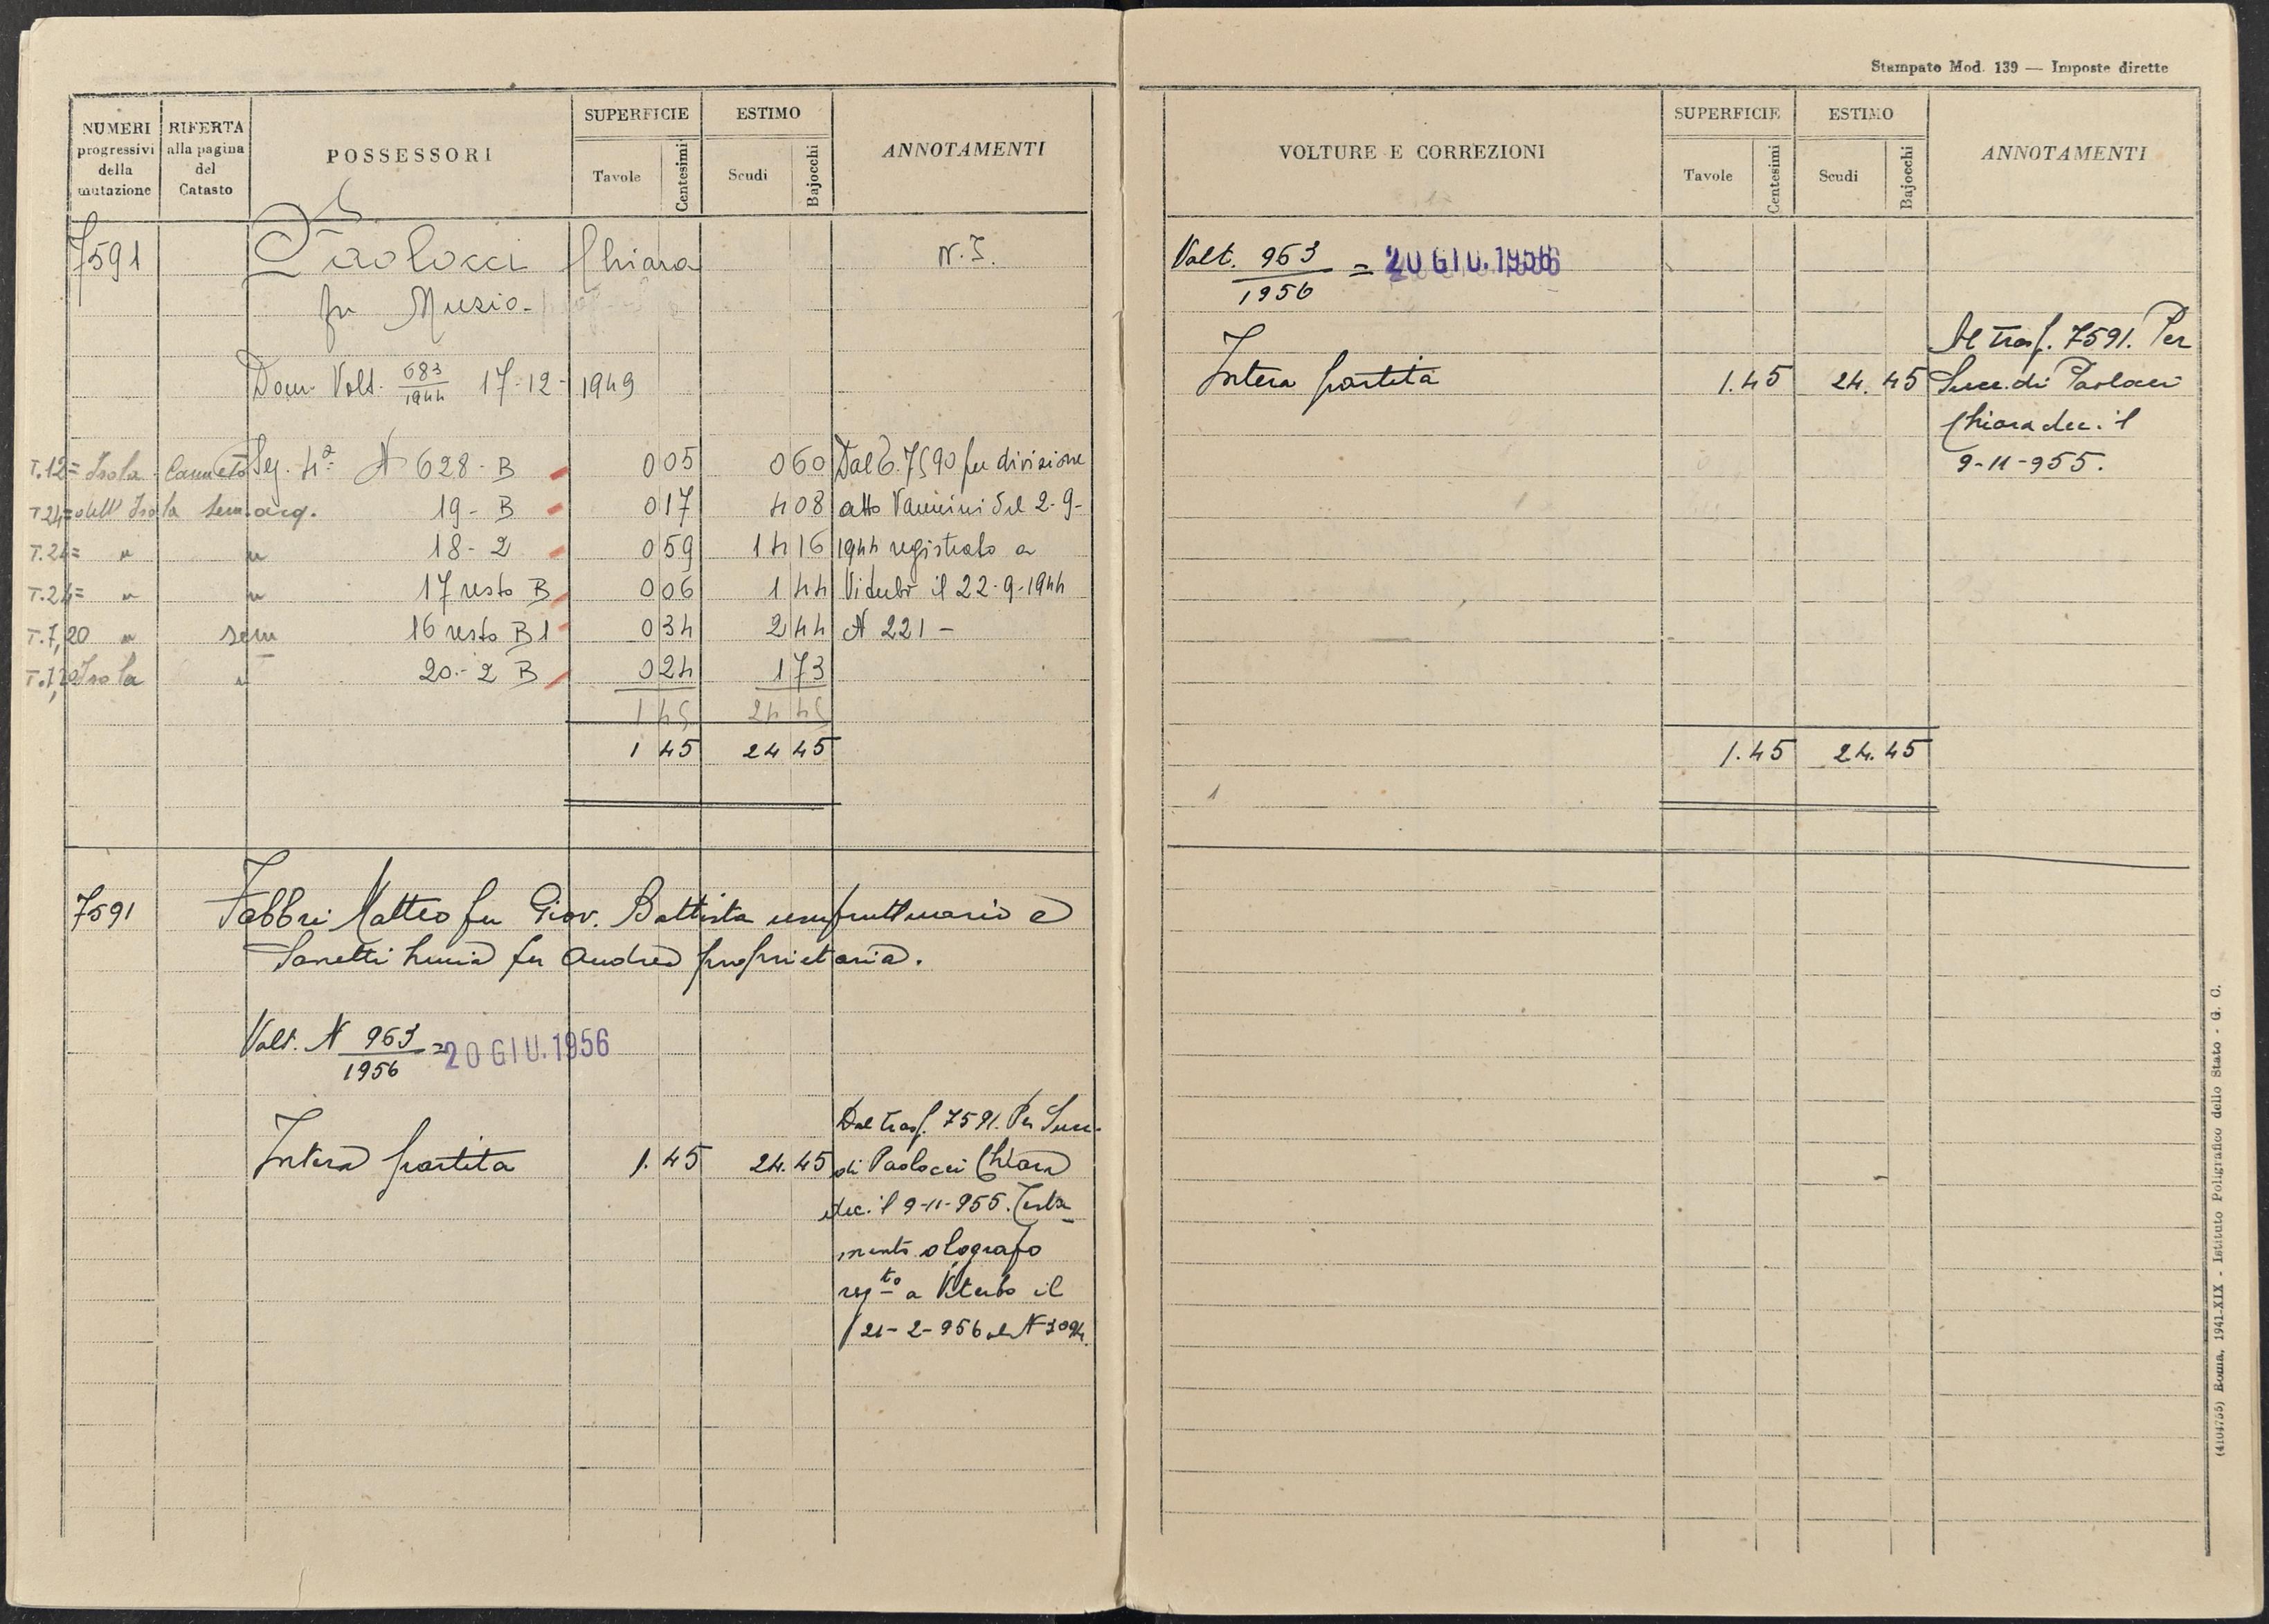 NUMERI progressivi della mutazione
RIFERTA alla pagina del Catasto
POSSESSORI
SUPERFICIE
Tavole
Centesimi
ESTIMO
Scudi
Bajocchi
ANNOTAMENTI
7591 Paolocci Chiara N.I.
fu Muzio
Dom. Volt. 683/1944 17-12-1949
T.12= Isola Canneto Sez. 4ª N 628-B 0 05 0 60 Dal 6. 7590 per divisione
T24= dell'Isola sem. arq. 19-B 0 17 4 08 atto Vannini del 2-9-
T.24= " " 18-2 0 59 14 16 1944 registrato a
T.24= " " 17 resto B 0 06 1 44 Viterbo il 22-9-1944
T.7,20 " sem 16 resto B1 0 34 2 44 N 221-
T.7,20 Isola " 20-2 B 0 24 1 73
1 45 24 45
1 45 24 45
7591 Fabbri Matteo fu Giov. Battista usufruttuario e
fu Andrea proprietaria.
Volt. N 963/1956 = 20 GIU. 1956
Dal trasf. 7591. Per Succ.
Intera partita 1.45 24.45 di Paolocci Chiara
dec. il 9-11-955. Testa
mento olografo
regto a Viterbo il
21-2-956 al N 3094
Stampato Mod. 139 — Imposte dirette
VOLTURE E CORREZIONI
SUPERFICIE
Tavole
Centesimi
ESTIMO
Scudi
Bajocchi
ANNOTAMENTI
Volt. 963/1956 = 20 GIU. 1956
Al trasf. 7591. Per
Intera partita 1.45 24.45 Succ. di Paolocci
Chiara dec. il
9-11-955.
1.45 24.45
(4104755) Roma, 1941-XIX - Istituto Poligrafico dello Stato - G. C.